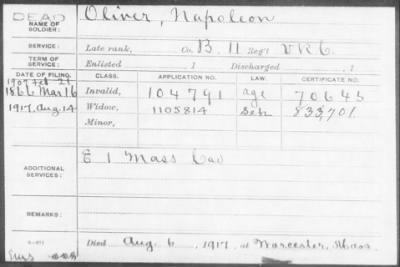 DEAD
NAME OF SOLDIER: Oliver, Napoleon
SERVICE: Late rank, Co. B, 11 Reg't V R C.
TERM OF SERVICE: Enlisted , 1 Discharged , 1
DATE OF FILING. CLASS. APPLICATION NO. LAW. CERTIFICATE NO.
1907 Feb 21
1866 Mar 16 Invalid, 104791 age 70645
1917. Aug. 14 Widow, 1105814 833,701
Minor,
ADDITIONAL SERVICES: E 1 Mass Cav
REMARKS:
Died Aug. 6, 1917, at Worcester, Mass.